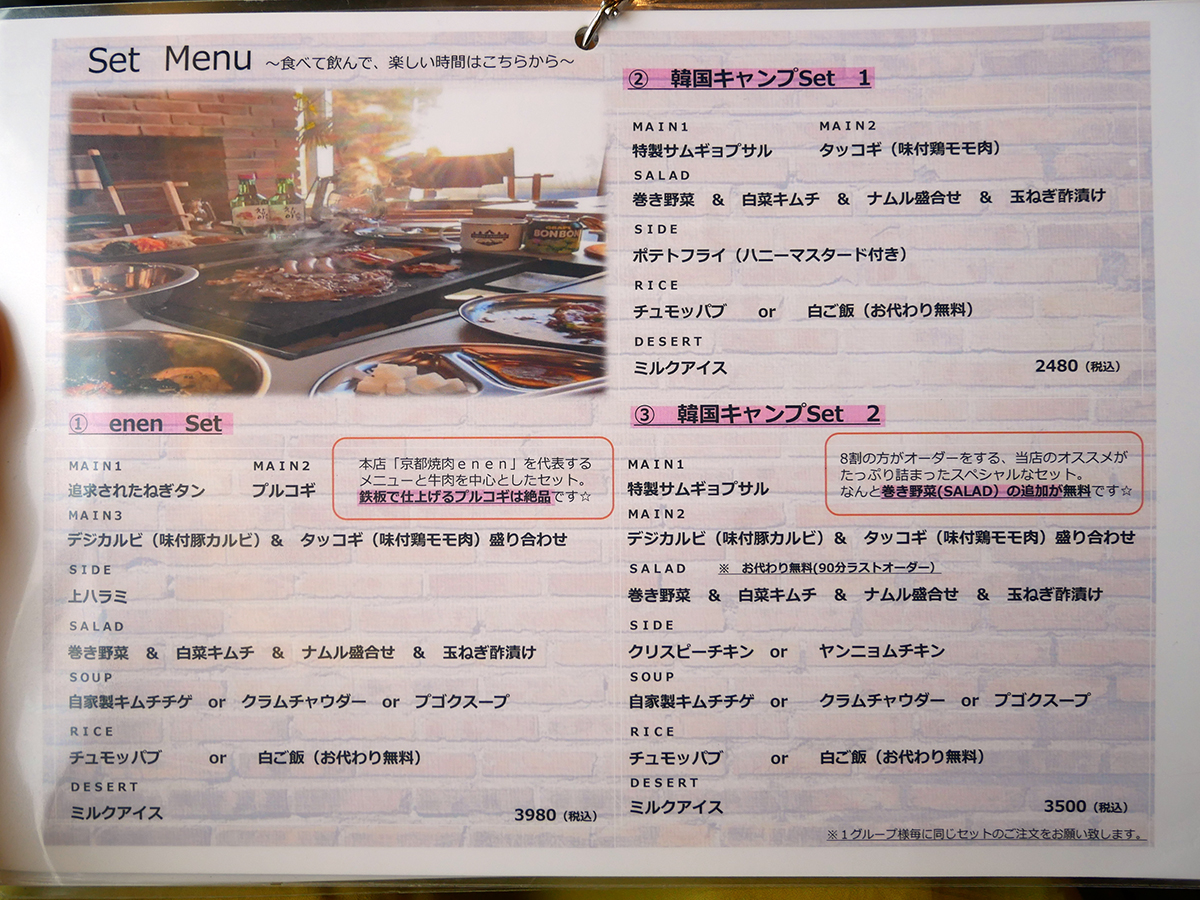 Set Menu ～食べて飲んで、楽しい時間はこちらから～
BONBON
① enen Set
本店「京都焼肉ｅｎｅｎ」を代表する
メニューと牛肉を中心としたセット。
鉄板で仕上げるプルコギは絶品です☆
MAIN1 MAIN2
追求されたねぎタン プルコギ
MAIN3
デジカルビ（味付豚カルビ）＆ タッコギ（味付鶏モモ肉）盛り合わせ
SIDE
上ハラミ
SALAD
巻き野菜 ＆ 白菜キムチ ＆ ナムル盛合せ ＆ 玉ねぎ酢漬け
SOUP
自家製キムチチゲ or クラムチャウダー or プゴクスープ
RICE
チュモッパブ or 白ご飯（お代わり無料）
DESERT
ミルクアイス 3980（税込）
② 韓国キャンプSet 1
MAIN1 MAIN2
特製サムギョプサル タッコギ（味付鶏モモ肉）
SALAD
巻き野菜 ＆ 白菜キムチ ＆ ナムル盛合せ ＆ 玉ねぎ酢漬け
SIDE
ポテトフライ（ハニーマスタード付き）
RICE
チュモッパブ or 白ご飯（お代わり無料）
DESERT
ミルクアイス 2480（税込）
③ 韓国キャンプSet 2
8割の方がオーダーをする、当店のオススメが
たっぷり詰まったスペシャルなセット。
なんと巻き野菜(SALAD）の追加が無料です☆
MAIN1
特製サムギョプサル
MAIN2
デジカルビ（味付豚カルビ）＆ タッコギ（味付鶏モモ肉）盛り合わせ
SALAD ※ お代わり無料(90分ラストオーダー）
巻き野菜 ＆ 白菜キムチ ＆ ナムル盛合せ ＆ 玉ねぎ酢漬け
SIDE
クリスピーチキン or ヤンニョムチキン
SOUP
自家製キムチチゲ or クラムチャウダー or プゴクスープ
RICE
チュモッパブ or 白ご飯（お代わり無料）
DESERT
ミルクアイス 3500（税込）
※１グループ様毎に同じセットのご注文をお願い致します。